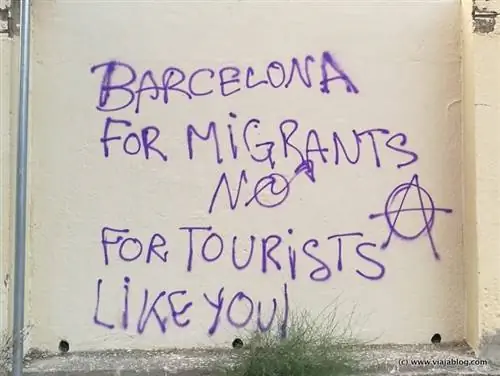 BARCELONA
FOR MiGRANTS
NO
FOR TOURiSTS
LiKE YOU!
(c) www.viajablog.com